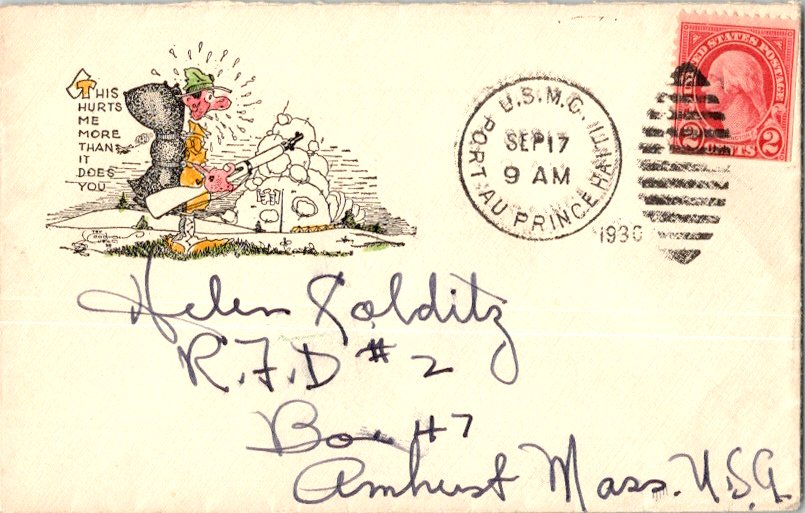 THIS
HURTS
ME
MORE
THAN
IT
DOES
YOU
U.S.M.C.
PORT AU PRINCE HAITI
SEP 17
9 AM
1930
UNITED STATES POSTAGE
2 CENTS 2
Helen Kolditz
R.F.D #2
Box 47
Amhurst Mass. U.S.A